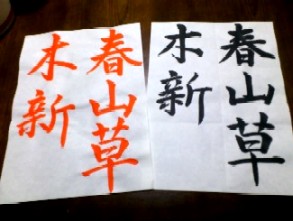 春山草
木新
春山草
木新